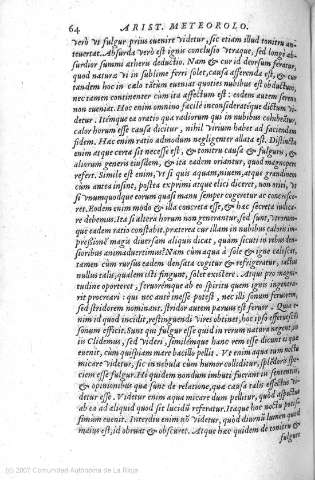 64 ARIST. METEOROLO.
verò vt fulgur prius euenire videtur, sic etiam illud tonitru an-
teuertat. Absurda verò est ignis conclusio vtraque, sed longè ab-
surdior summi ætheris deductio. Nam & cur id deorsum feratur,
quod natura vi in sublime ferri solet, causa afferenda est, & cur
tandem hoc in cælo tātùm eueniat quoties nubibus est obductum,
nec tamen continenter cùm ita affectum est: eodem autem sereno
non eueniat. Hoc enim omnino facilè inconsideratéque dictum vi-
detur. Itémque ea oratio qua radiorum qui in nubibus cohibetur,
calor horum esse causa dicitur, nihil virium habet ad faciendam
fidem. Hæc enim ratio admodum negligenter allata est. Distincta
enim atque certa sit necesse est, & tonitru causa & fulguri, &
aliorum generis eiusdem, & ita eadem oriantur, quod magnopere
refert. Simile est enim, vt si quis aquam, niuem, atque grandinem
cùm antea insint, postea exprimi atque elici diceret, non oriri, vt
si vnumquodque eorum quasi manu semper cogeretur ac conficere-
tur. Eodem enim modo & illa concreta esse, & hæc secreta iudica-
re debemus. Ita si altera horum non generantur,
que eadem ratio constabit. præterea cur illam in nubibus caloris im-
pressionē magis diuersam aliquis dicat, quàm sicuti in rebus den-
sioribus animaduertimus? Nam cùm aqua à sole & igne calefiat,
tamen cùm rursus eadem densata cogitur & refrigeratur, iactus
nullus talis, qualem isti fingunt, solet existere. Atqui pro magni-
tudine oporteret, feruorémque ab eo spiritu quem ignis ingenera-
rit procreari: qui nec antè inesse potest, nec illis sonum feruorem,
sed stridorem nominant. stridor autem paruus est feruor. Qua e-
nim id quod incidit, restinguendi vires obtinet, hoc ipso efferuescēs
sonum efficit. Sunt qui fulgur esse quid in rerum natura negent, vt
in Clidemus, sed videri, similémque hanc rem esse dicant si quid
euenit, cùm quispiam mare bacillo pellit. Vt enim aqua tum noctu
micare videtur, sic in nebula cùm humor colliditur, splēdoris spe-
ciem esse fulgur. Hi quidem nondum imbuti fuerant sententiis,
& opinionibus quæ sunt de relatione, quæ causa talis effectus vi-
detur esse. Videtur enim aqua micare dum pellitur, quòd aspectus
ab ea ad aliquid quod sit lucidū referatur. Itaque hoc noctu potis-
simum euenit. Interdiu enim nō videtur, quòd diurnū lumen quod
maius est, id obruat & obscuret. Atque hæc quidem de tonitru &
fulgure
(c) 2007 Comunidad Autónoma de La Rioja